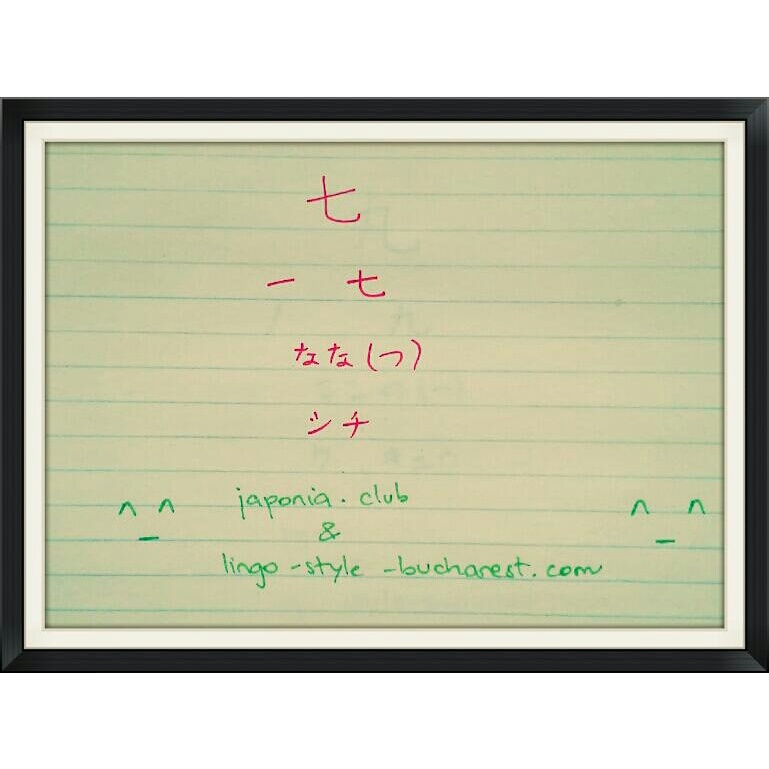 七
一 七
なな(つ)
シチ
^_^ japonia.club ^_^
&
lingo-style-bucharest.com